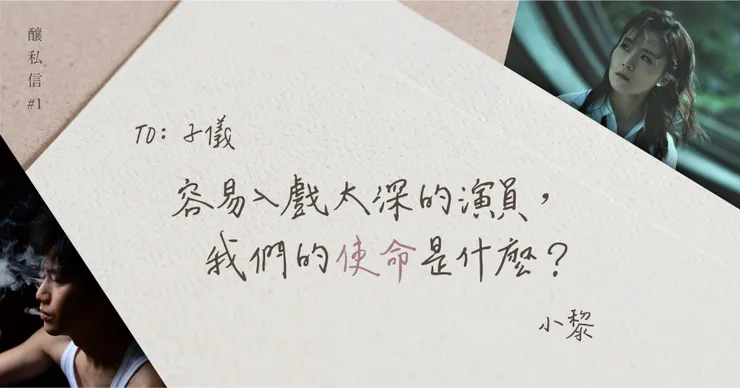 釀私信
#1
TO：子儀
容易入戲太深的演員，
我們的使命是什麼？
小黎